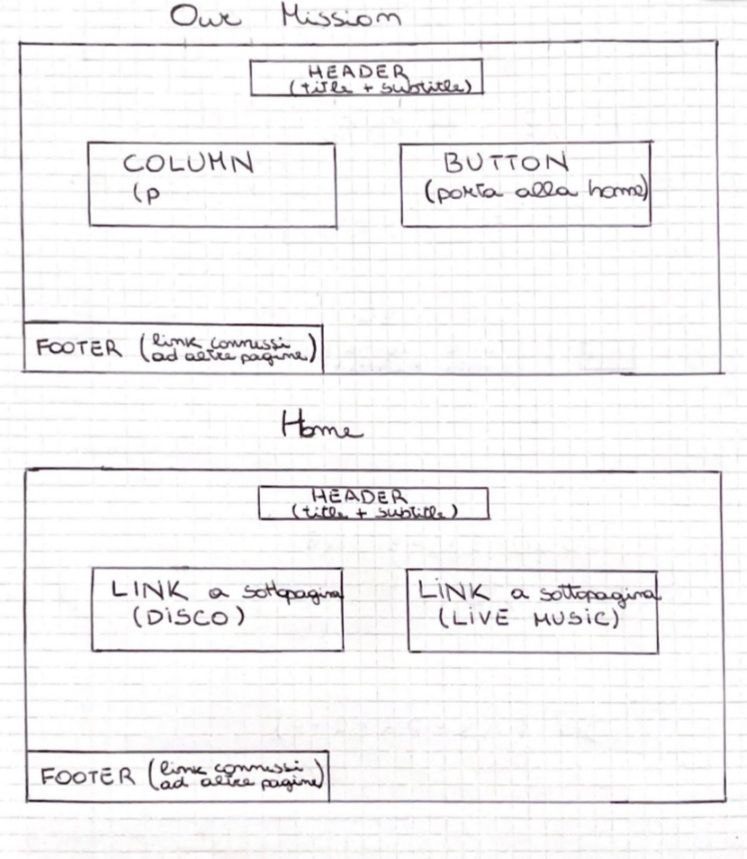 Our Mission
HEADER
(title + subtitle)
COLUMN
(p
BUTTON
(porta alla home)
FOOTER (link connessi
ad altre pagine)
Home
HEADER
(title + subtitle)
LINK a sottopagina
(DISCO)
LINK a sottopagina
(LIVE MUSIC)
FOOTER (link connessi
ad altre pagine)